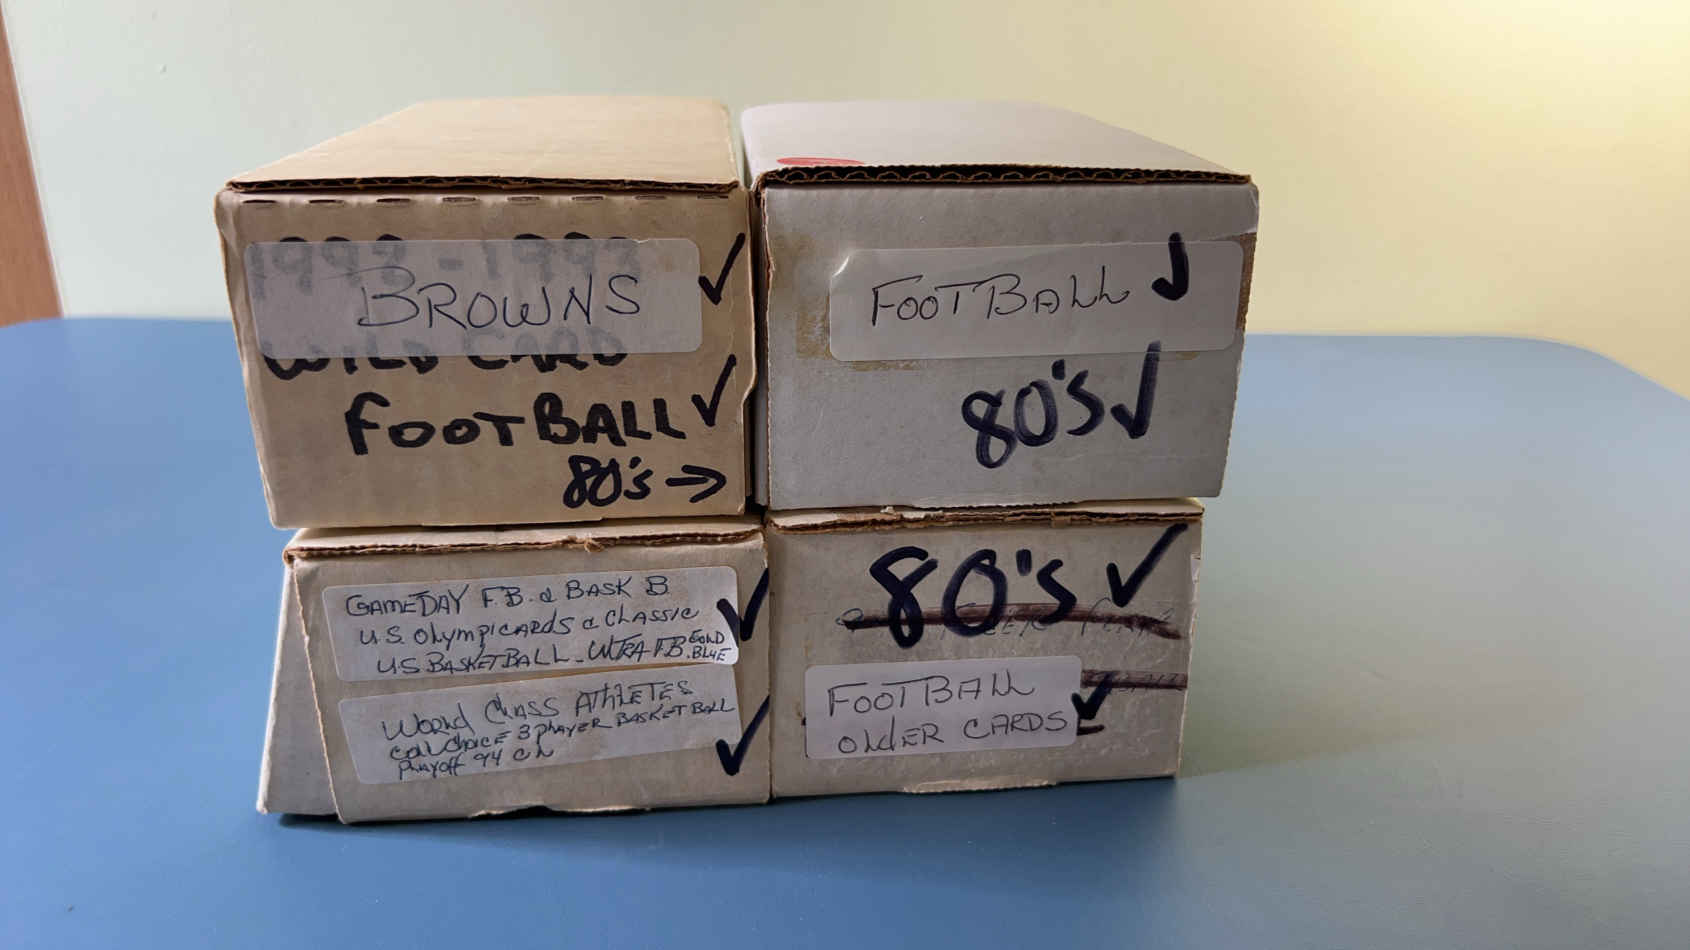 1992-1993
BROWNS
WILD CARD
FOOTBALL
80's →
FOOTBALL
80's
GAMEDAY F.B. & BASK B.
U.S. OlympiCARDS & CLASSIC
U.S. BASKETBALL - ULTRA F.B. GOLD
BLUE
WORLD CLASS ATHLETES
COLL CHOICE 3 PLAYER BASKETBALL
PLAYOFF 94
80's
FOOTBALL
OLdER CARDS